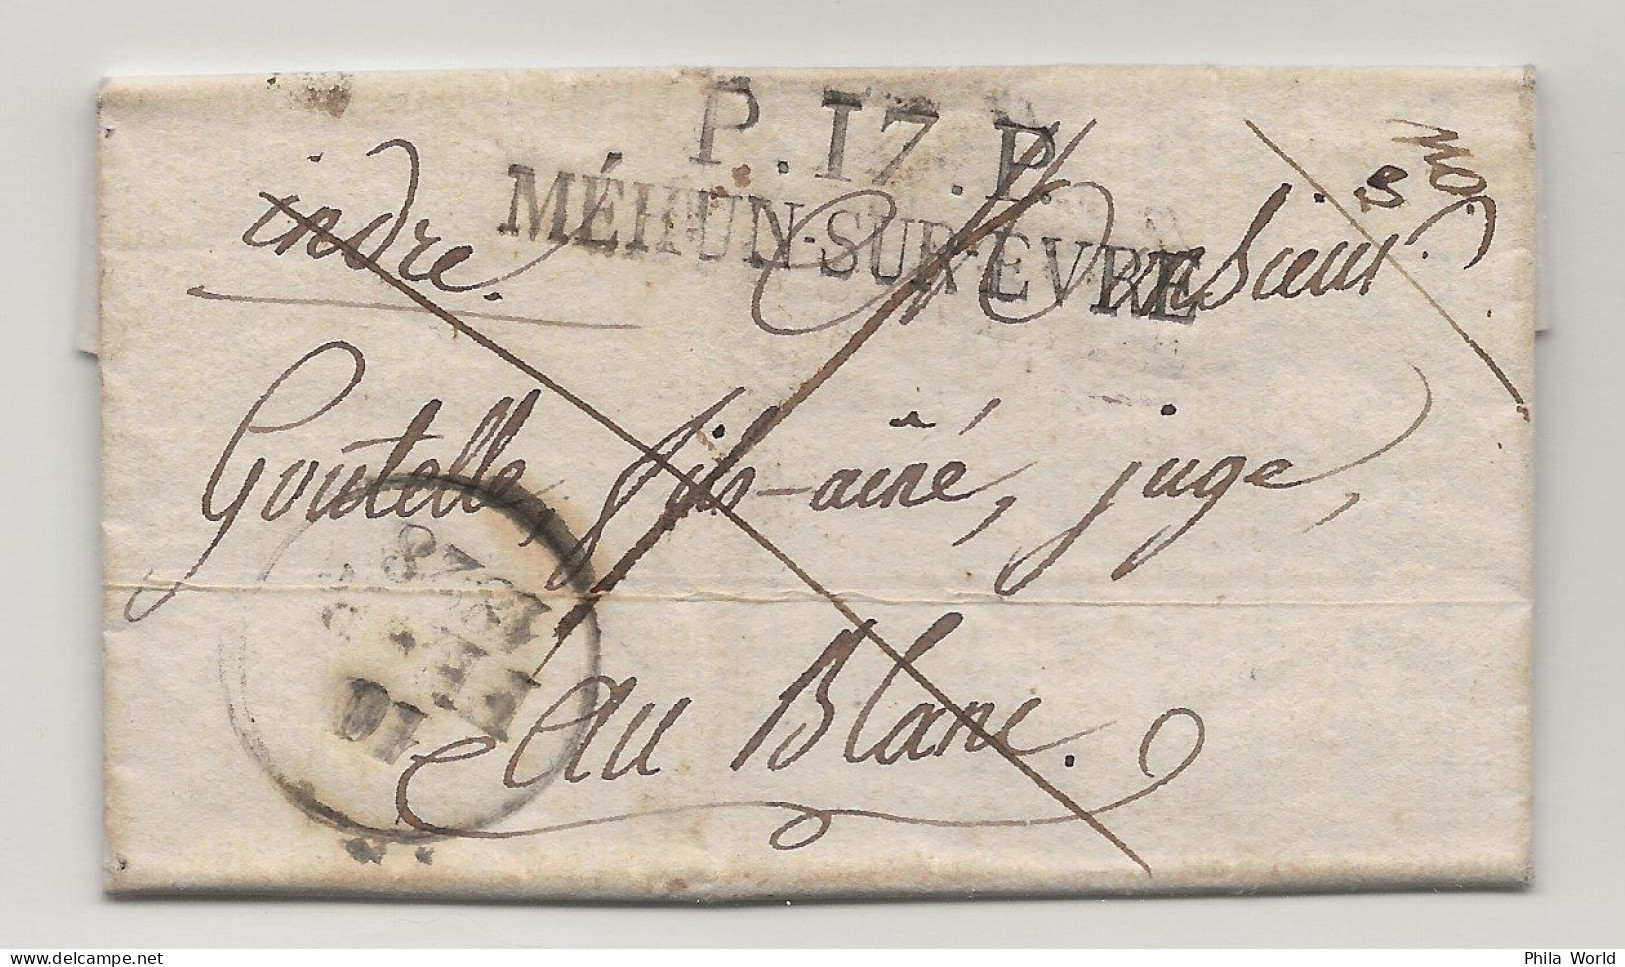 P.17.P.
MÉHUN-SUR-EVRE
indre.
Monsieur
Goutelle, fils-aîné, juge,
au Blanc.
10
1828
Phila World